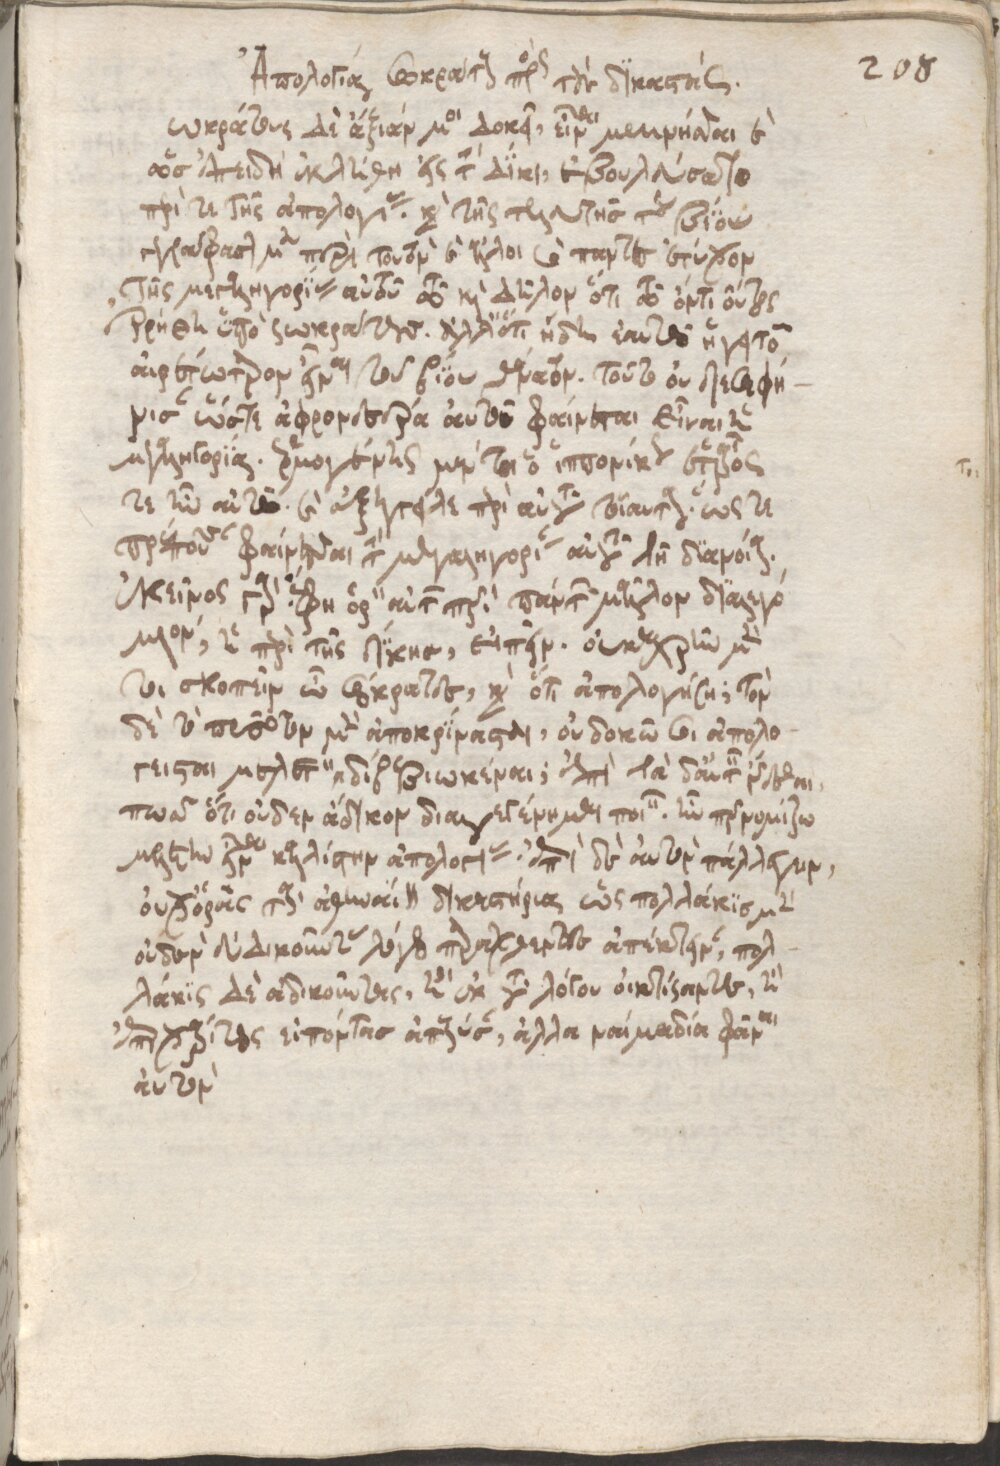 Ἀπολογία Σωκράτους πρὸς τοὺς δικαστάς.
208
ωκράτους δὲ ἄξιόν μοι δοκεῖ εἶναι μεμνῆσθαι καὶ
ὡς ἐπειδὴ ἐκλήθη εἰς τὴν δίκην, ἐβουλεύσατο
περί τε τῆς ἀπολογίας. καὶ τῆς τελευτῆς τοῦ βίου
γεγράφασι μὲν περὶ τούτου καὶ ἄλλοι καὶ πάντες ἔτυχον
τῆς μεγαληγορίας αὐτοῦ ᾧ καὶ δῆλον ὅτι τῷ ὄντι οὕτως
ἐρρήθη ὑπὸ Σωκράτους. ἀλλ' ὅτι ἤδη ἑαυτῷ ἡγεῖτο
αἱρετώτερον εἶναι τοῦ βίου θάνατον. τοῦτο οὐ διεσαφή-
νισαν ὥστε ἀφρονεστέρα αὐτοῦ φαίνεται εἶναι ἡ
μεγαληγορία. Ἑρμογένης μέντοι ὁ ἱππονίκου ἑταῖρός
τε ἦν αὐτῷ. καὶ ἐξήγγειλε περὶ αὐτοῦ τοιαῦτα. ὥστε
πρέπουσαν φαίνεσθαι τὴν μεγαληγορίαν αὐτοῦ τῇ διανοίᾳ.
ἐκεῖνος γὰρ ἔφη ὁρῶν αὐτὸν περὶ πάντων μᾶλλον διαλεγό
μενον, ἢ περὶ τῆς δίκης, εἰπεῖν. οὐκ ἐχρῆν μέν
τοι σκοπεῖν ὦ Σώκρατες, καὶ ὅτι ἀπολογήσῃ; τὸν
δὲ τὸ πρῶτον μὲν ἀποκρίνασθαι, οὐ δοκῶ σοι ἀπολο
γεῖσθαι μελετῶν διαβεβιωκέναι; ἐπεὶ δ' αὐτὸν ἐρέσθαι,
πῶς ὅτι οὐδὲν ἄδικον διαγεγένημαι ποιῶν. ἥνπερ νομίζω
μελέτην εἶναι καλλίστην ἀπολογίας. ἐπεὶ δὲ αὐτὸν πάλιν λέγειν,
οὐχ ὁρᾷς τὰ ἀθηναίων δικαστήρια ὡς πολλάκις μὲν
οὐδὲν ἀδικοῦντας λόγῳ παραχθέντες ἀπέκτειναν, πολ-
λάκις δὲ ἀδικοῦντας, ἢ ἐκ τοῦ λόγου οἰκτίσαντες, ἢ
ἐπιχαρίτως εἰπόντας ἀπέλυσαν, ἀλλὰ ναὶ μὰ δία φάναι
αὐτὸν